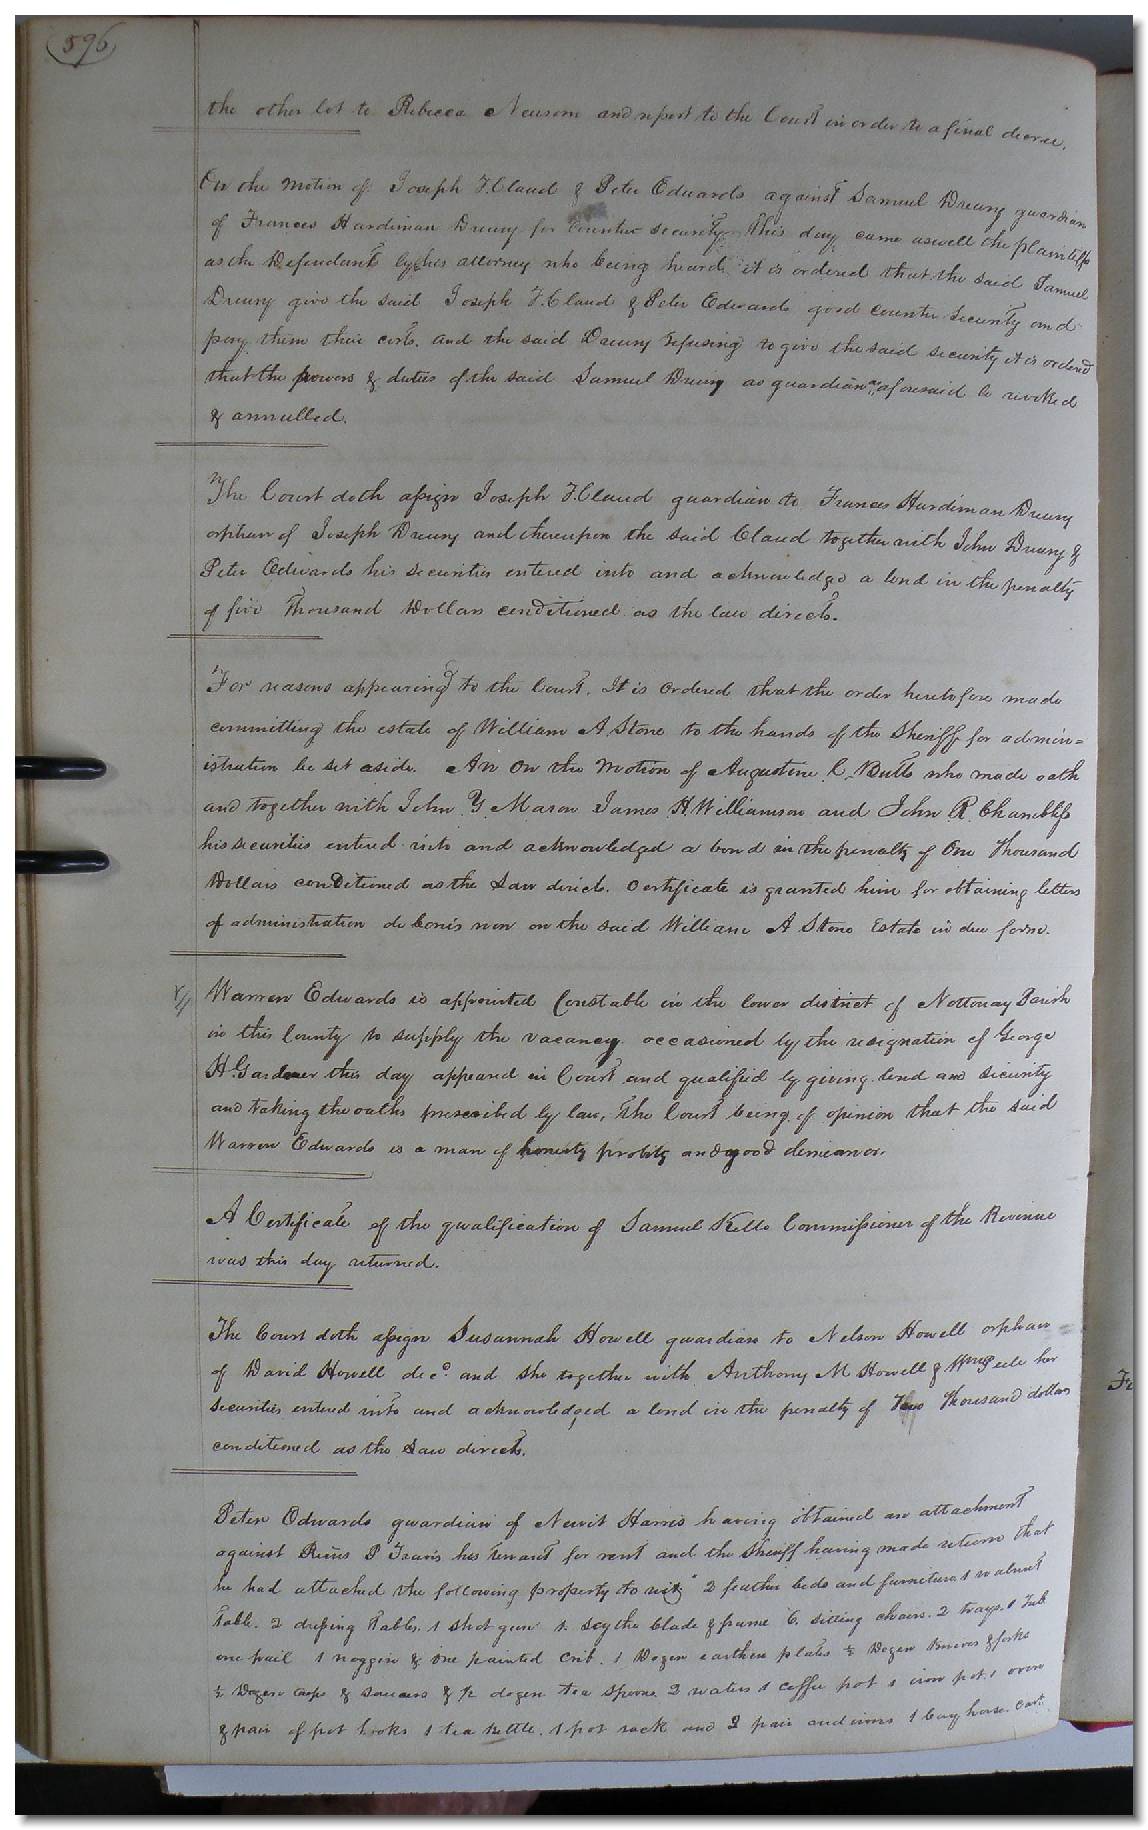 596
the other lot to Rebecca Newsom and report to the Court in order to a final decree.
On the motion of Joseph T. Claud & Peter Edwards against Samuel Drewry guardian
of Frances Hardiman Drewry for Counter security this day came aswell the plaintiffs
as the Defendant by his attorney who being heard it is ordered that the said Samuel
Drewry give the said Joseph T. Claud & Peter Edwards good counter security and
pay them their costs. and the said Drewry refusing to give the said security it is ordered
that the powers & duties of the said Samuel Drewry as guardian as aforesaid be revoked
& annulled.
The Court doth assign Joseph T. Claud guardian to Frances Hardiman Drewry
orphan of Joseph Drewry and thereupon the said Claud together with John Drewry &
Peter Edwards his securities entered into and acknowledged a bond in the penalty
of five Thousand Dollars conditioned as the law directs.
For reasons appearing to the Court. It is Ordered that the order heretofore made
committing the estate of William A Stone to the hands of the Sheriff for admin=
istration be set aside. An On the motion of Augustine C. Butts who made oath
and together with John Y. Mason James H. Williamson and John R. Chambliss
his securities entered into and acknowledged a bond in the penalty of One Thousand
Dollars conditioned as the Law directs. Certificate is granted him for obtaining letters
of administration de bonis non on the said William A Stone Estate in due form.
Warren Edwards is appointed Constable in the lower district of Nottoway Parish
in this County to supply the vacancy occasioned by the resignation of George
H. Gardner this day appeared in Court and qualified by giving bond and security
and taking the oaths prescribed by law, The Court being of opinion that the said
Warren Edwards is a man of honesty probity and good demeanor.
A Certificate of the qualification of Samuel Kello Commissioner of the Revenue
was this day returned.
The Court doth assign Susannah Howell guardian to Nelson Howell orphan
of David Howell decd. and she together with Anthony M Howell & Peele her
securities entered into and acknowledged a bond in the penalty of Two Thousand dollars
conditioned as the Law directs.
Peter Edwards guardian of Newit Harris having obtained an attachment
against Rives P Travis his tenant for rent and the Sheriff having made return that
he had attached the following property to wit, 2 feather beds and furniture 1 walnut
Table. 2 dressing Tables. 1 shot gun 1 scythe blade & frame 6 sitting chairs. 2 trays. 1 Tub
one pail 1 noggin & one painted Crib. 1 Dozen earthen plates ½ Dozen knives & forks
½ Dozen cups & saucers & ½ dozen tea spoons 2 waters 1 coffee pot 1 iron pot. 1 oven
& pair of pot hooks 1 tea kettle. 1 pot rack and 2 pair andirons 1 bay horse. Cart